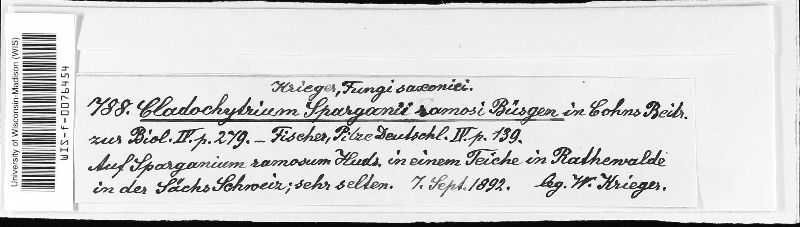 University of Wisconsin-Madison (WIS)
WIS-f-0076454
Krieger, Fungi saxonici.
788. Cladochytrium Sparganii ramosi Büsgen in Cohns Beitr.
zur Biol. IV. p. 279. — Fischer, Pilze Deutschl. IV. p. 139.
Auf Sparganium ramosum Huds. in einem Teiche in Rathewalde
in der Sächs Schweiz; sehr selten. 7. Sept. 1892. leg. W. Krieger.